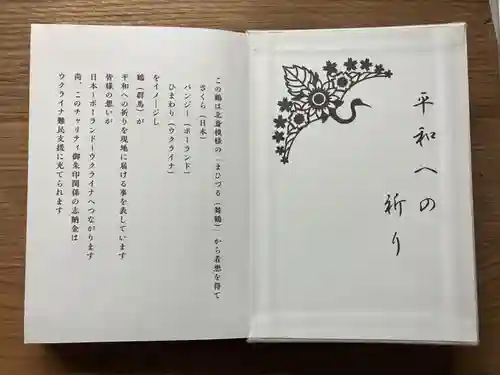 平和への
祈り
この鶴は北斎模様の「まひづる(舞鶴)」から着想を得て
さくら(日本)
パンジー(ポーランド)
ひまわり(ウクライナ)
をイメージし
鶴(群馬)が
平和への祈りを現地に届ける事を表しています
皆様の想いが
日本ーポーランドーウクライナへつながります
尚、このチャリティ御朱印関係の志納金は
ウクライナ難民支援に充てられます